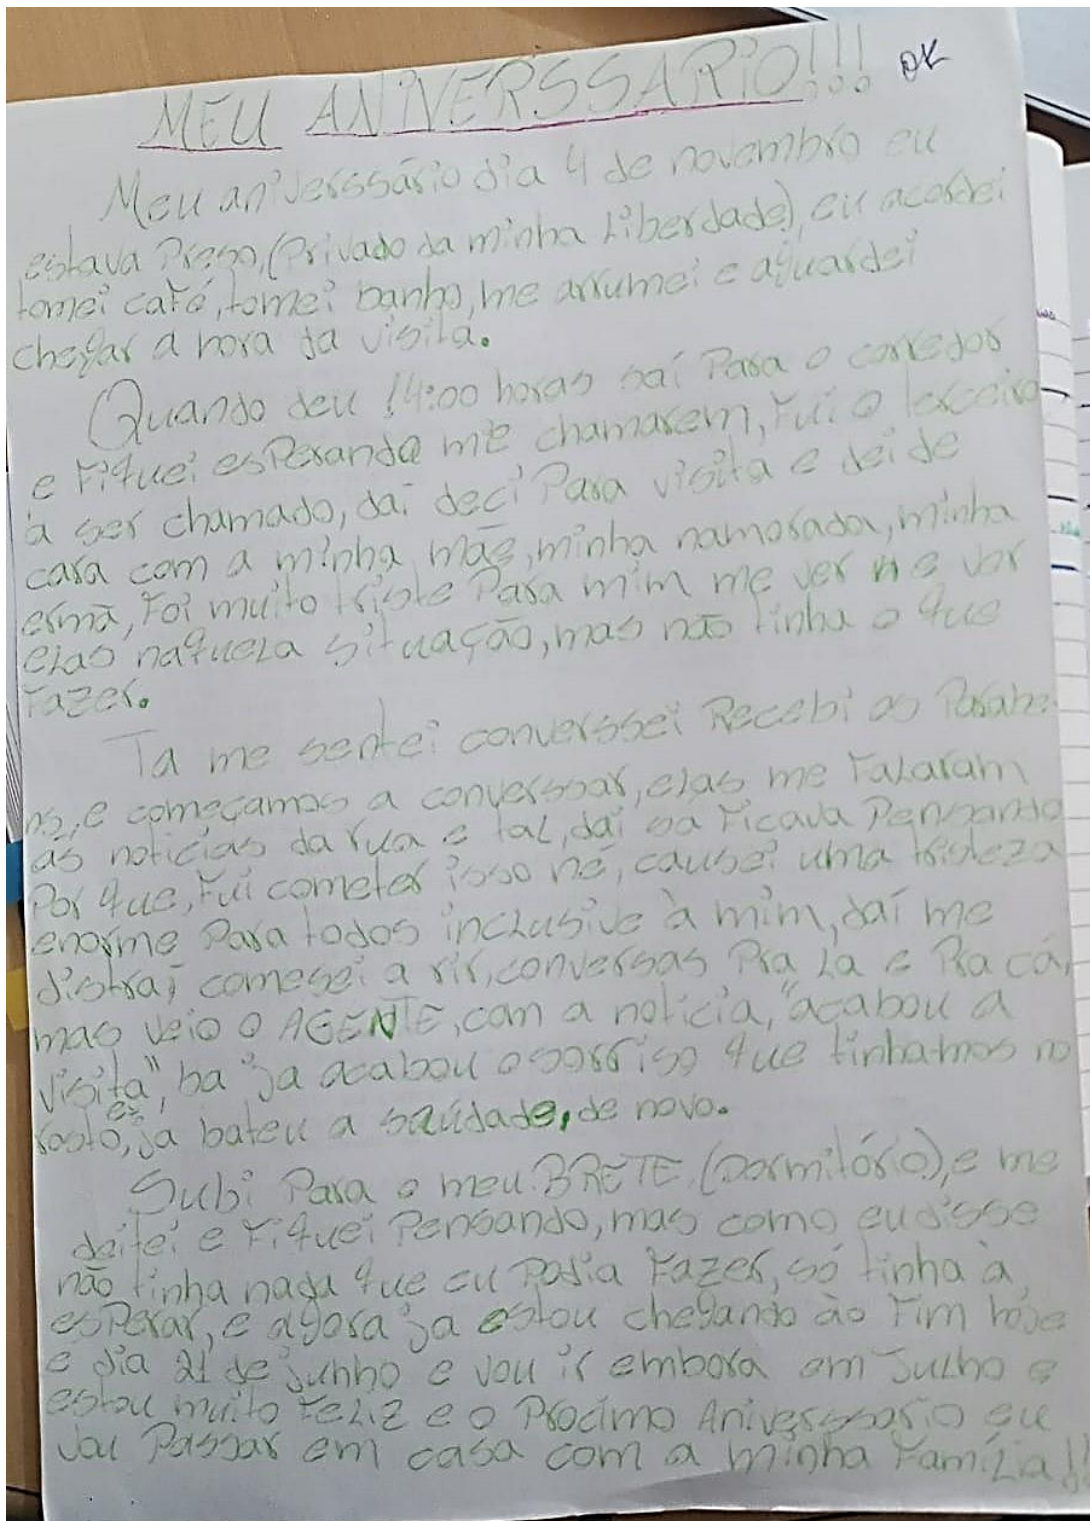 MEU ANIVERSSARIO!!! OK
Meu aniverssário dia 4 de novembro eu
estava Preso, (Privado da minha Liberdade), eu acordei
tomei café, tomei banho, me arrumei e aguardei
chegar a hora da visita.
Quando deu 14:00 horas saí Para o corredor
e Fiquei esPerando me chamarem, Fui o terceiro
à ser chamado, daí deci Para visita e dei de
cara com a minha mãe, minha namorada, minha
ermã, Foi muito triste Para mim me ver e ver
elas naquela situação, mas não tinha o que
Fazer.
Ta me sentei converssei Recebi os Parabe
ns, e começamos a converssar, elas me Falaram
as noticias da rua e tal, daí Ficava Pensando
Por que, Fui cometer isso né, causei uma tristeza
enorme Para todos inclusive à mim, daí me
distraí comesei a rir, conversas Pra La e Pra cá,
mas veio o AGENTE, com a noticia, "acabou a
visita", ba ja acabou o sorriso que tinhamos no
rosto, ja bateu a saúdade, de novo.
Subi Para o meu BRETE, (Dormitório), e me
deitei e Fiquei Pensando, mas como eu disse
não tinha nada que eu Podia Fazer, só tinha à
esPerar, e agora ja estou chegando ào Fim hoje
e dia 21 de junho e vou ir embora em Julho e
estou muito FeLiz e o Procimo Aniverssario eu
vou Passar em casa com a minha FamíLia!!